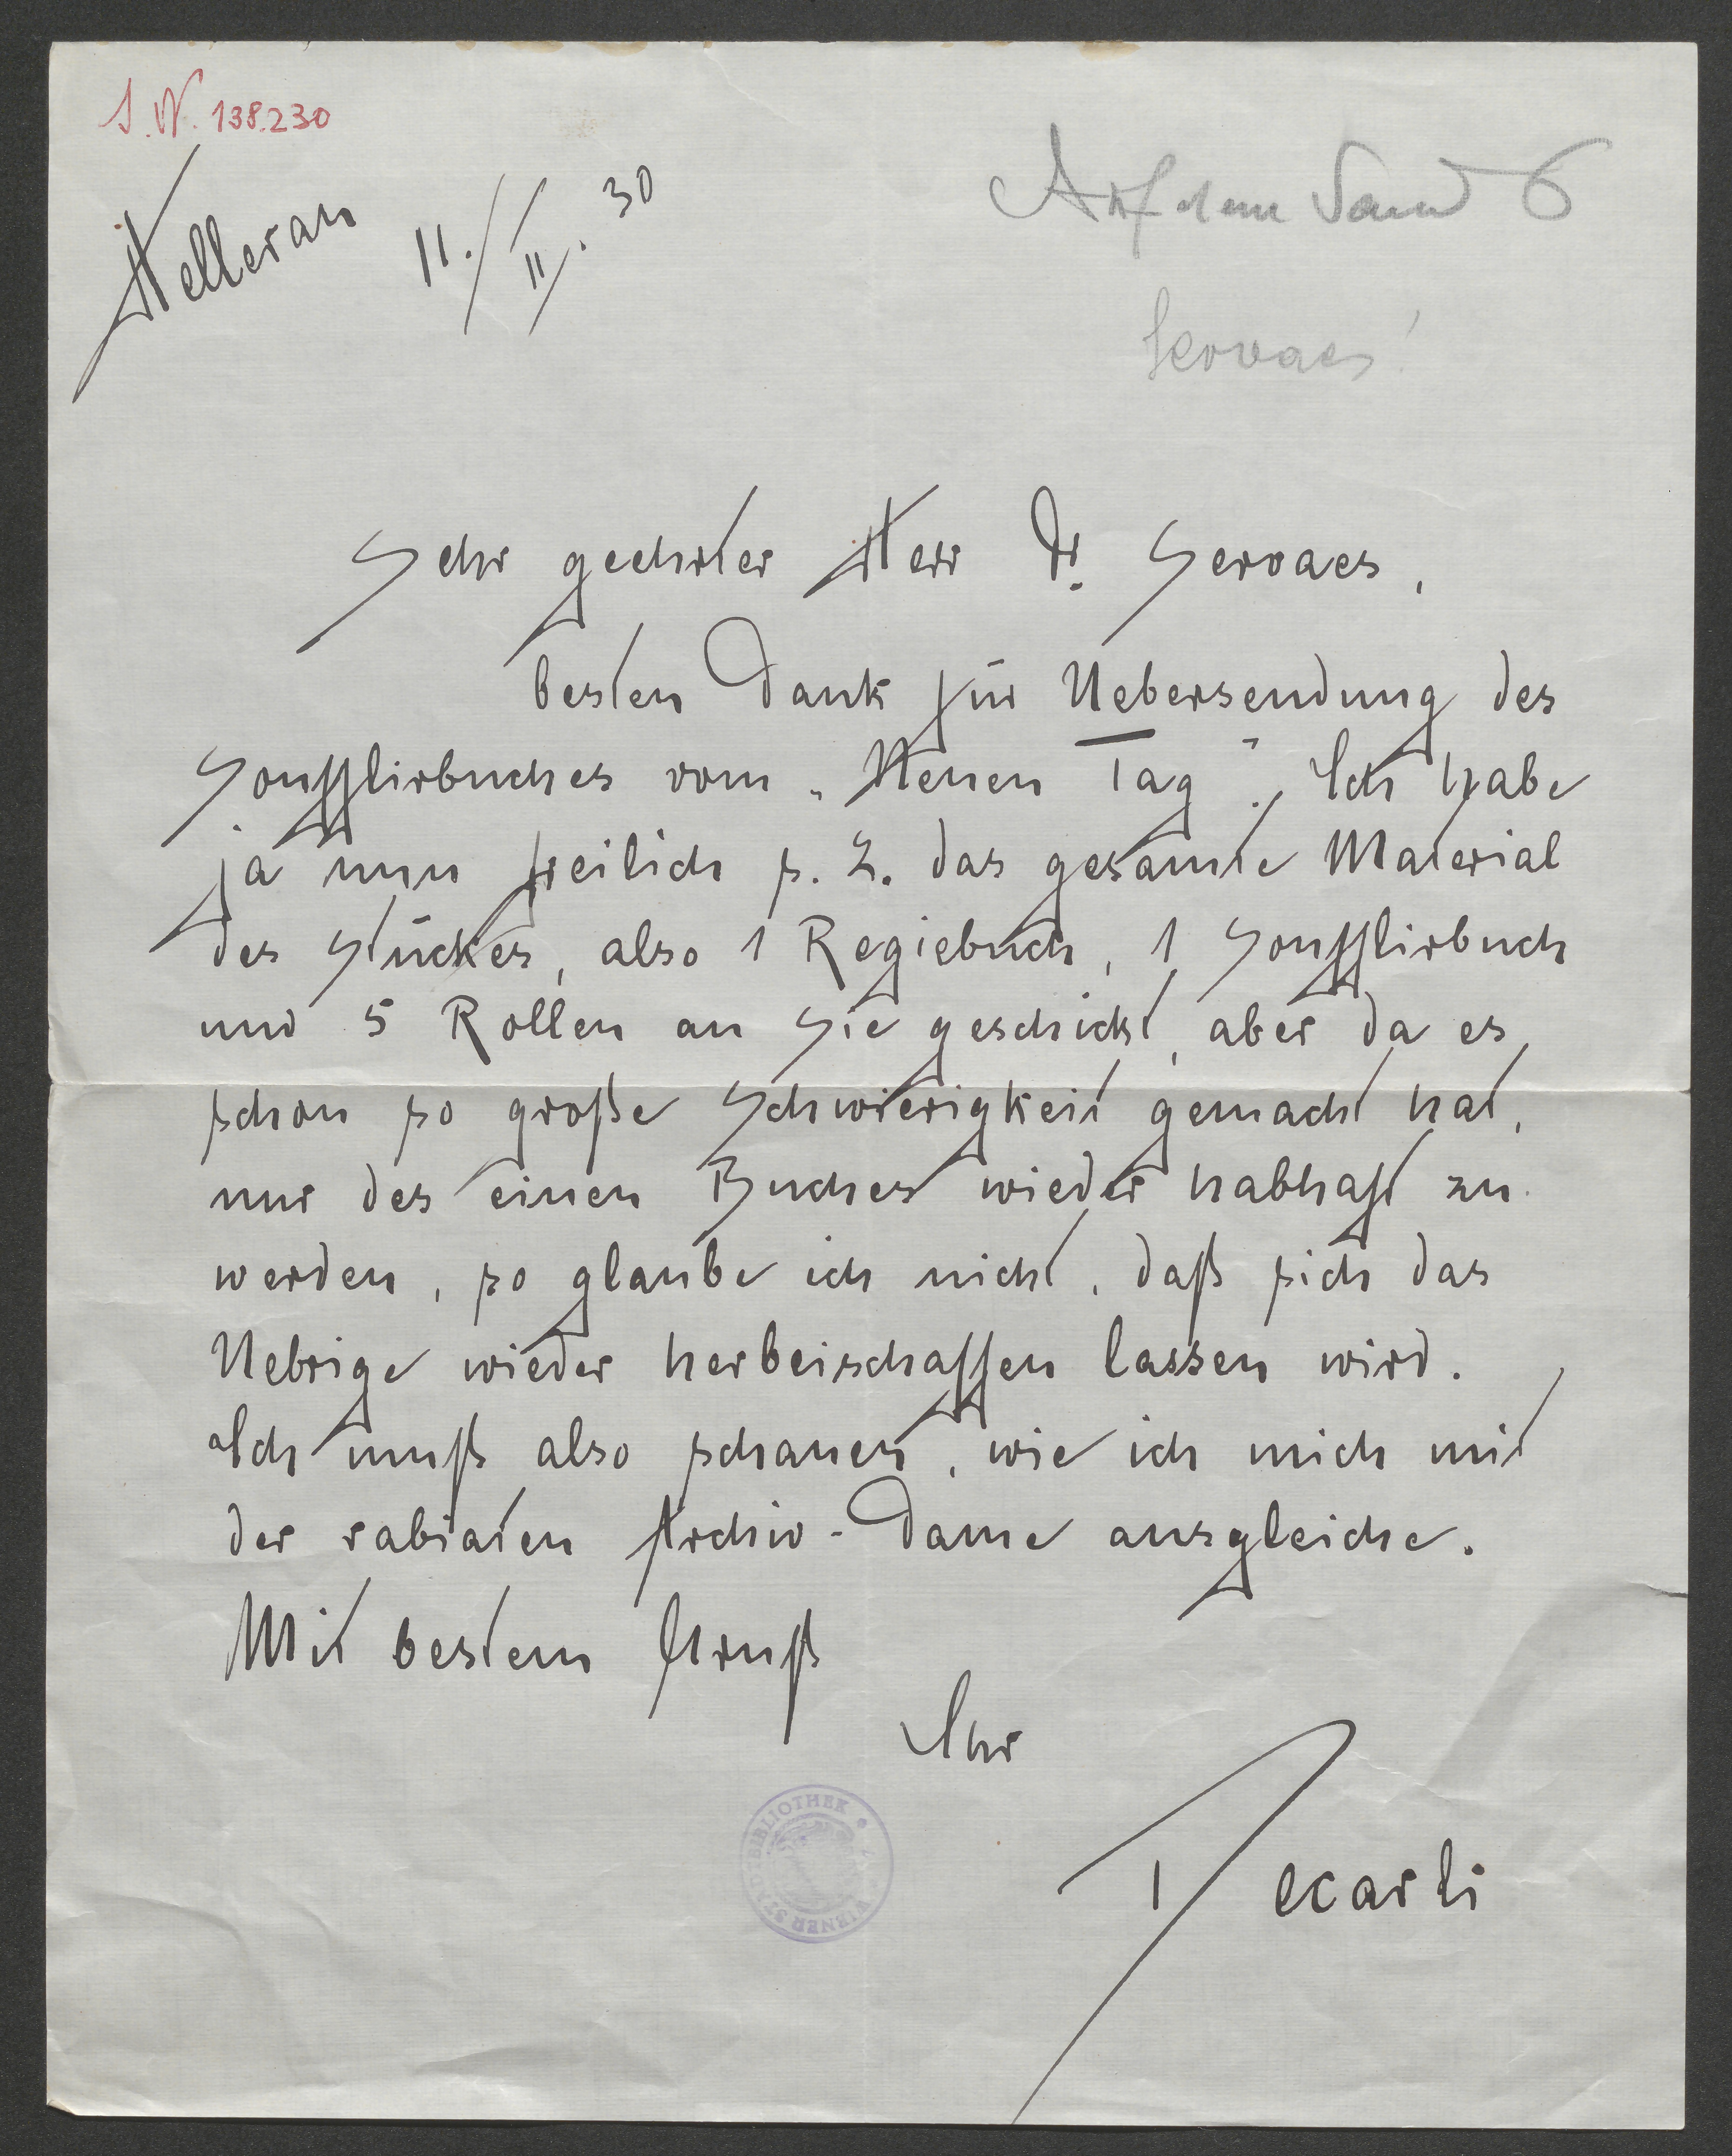 I. N. 138.230
Hellerau 11./II. 30
Auf dem Sand 6
Servaes!
Sehr geehrter Herr Dr. Servaes,
besten Dank für Uebersendung des
Soufflirbuches vom „Neuen Tag". Ich habe
ja nun freilich s. Z. das gesamte Material
des Stückes, also 1 Regiebuch, 1 Soufflirbuch
und 5 Rollen an Sie geschickt, aber da es
schon so große Schwierigkeit gemacht hat,
nur des einen Buches wieder habhaft zu
werden, so glaube ich nicht, daß sich das
Uebrige wieder herbeischaffen lassen wird.
Ich muß also schauen, wie ich mich mit
der rabiaten Archiv-Dame ausgleiche.
Mit bestem Gruß
Ihr
Decarli
WIENER STADTBIBLIOTHEK